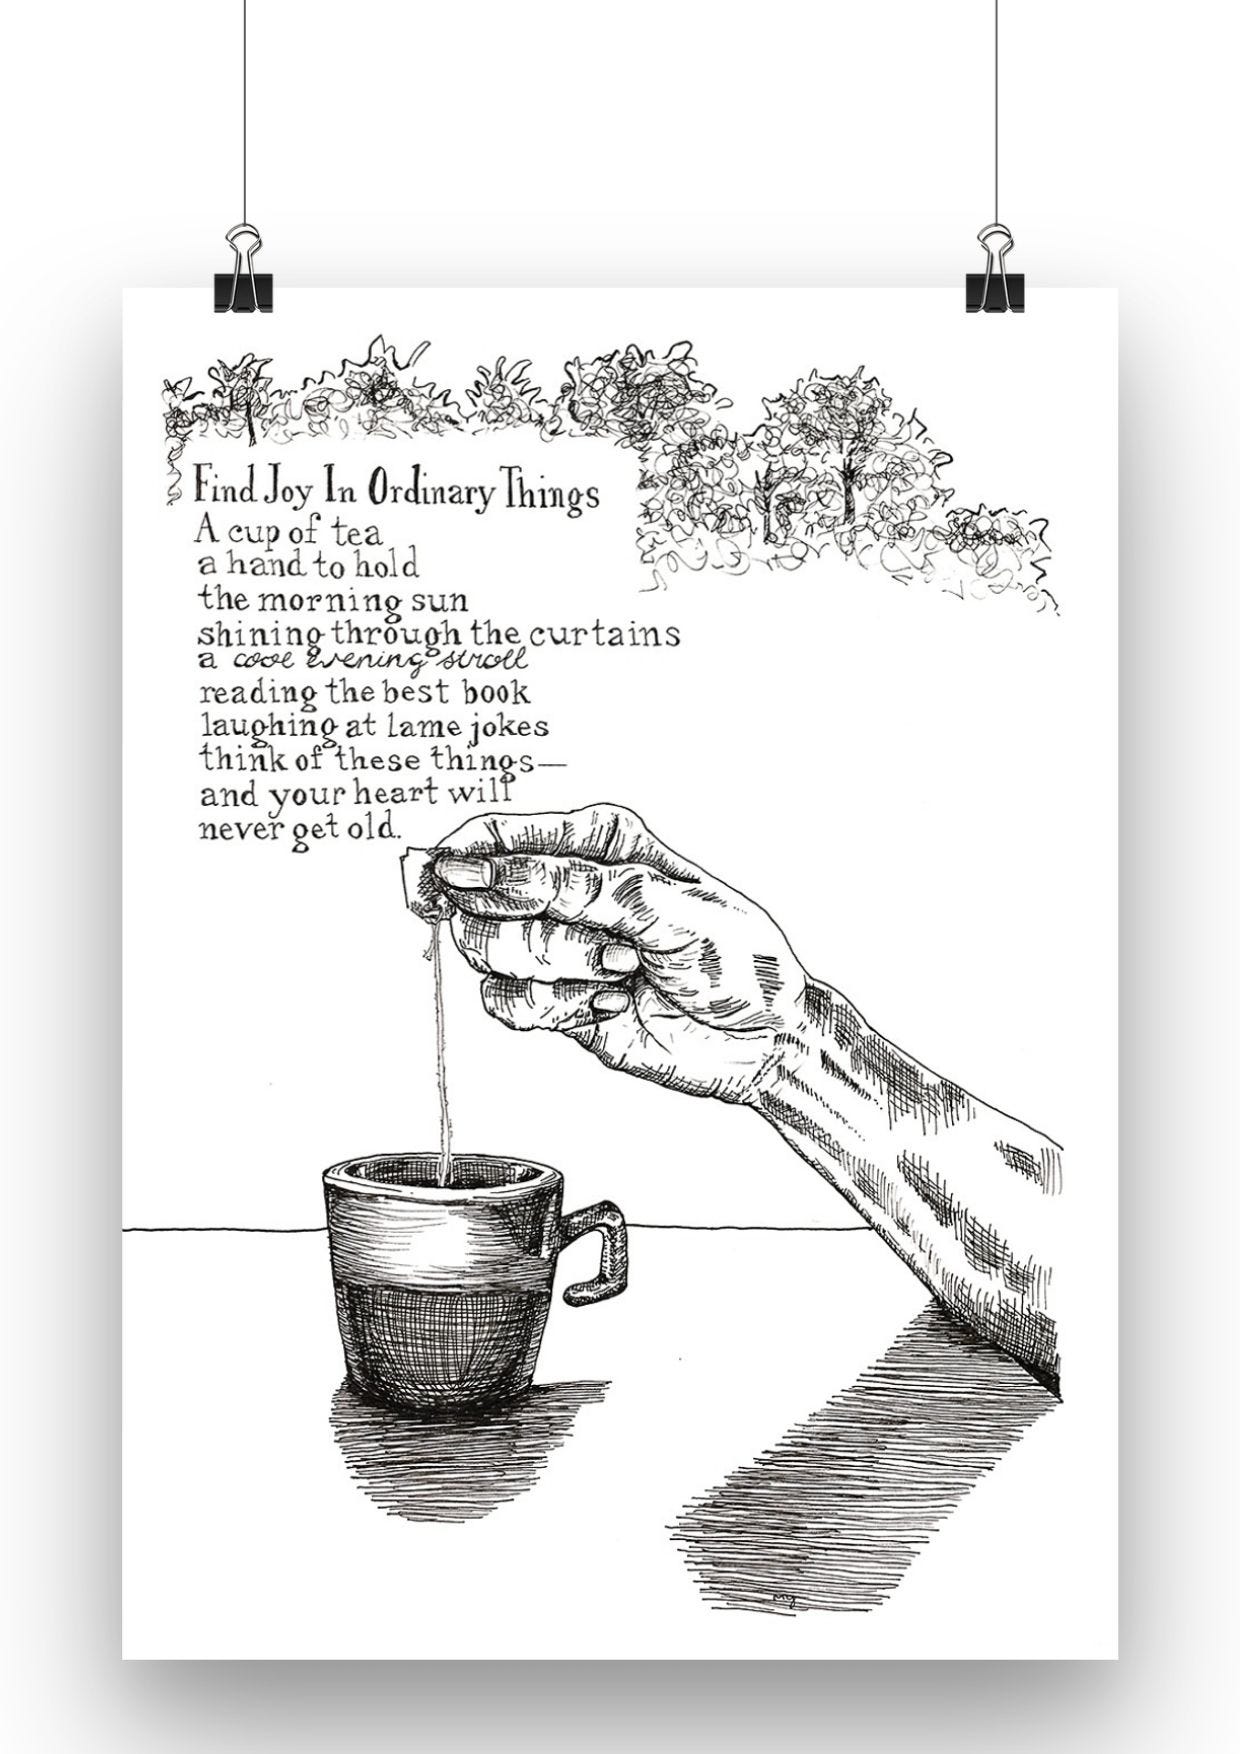 Find Joy In Ordinary Things
A cup of tea
a hand to hold
the morning sun
shining through the curtains
a cool evening stroll
reading the best book
laughing at lame jokes
think of these things—
and your heart will
never get old.